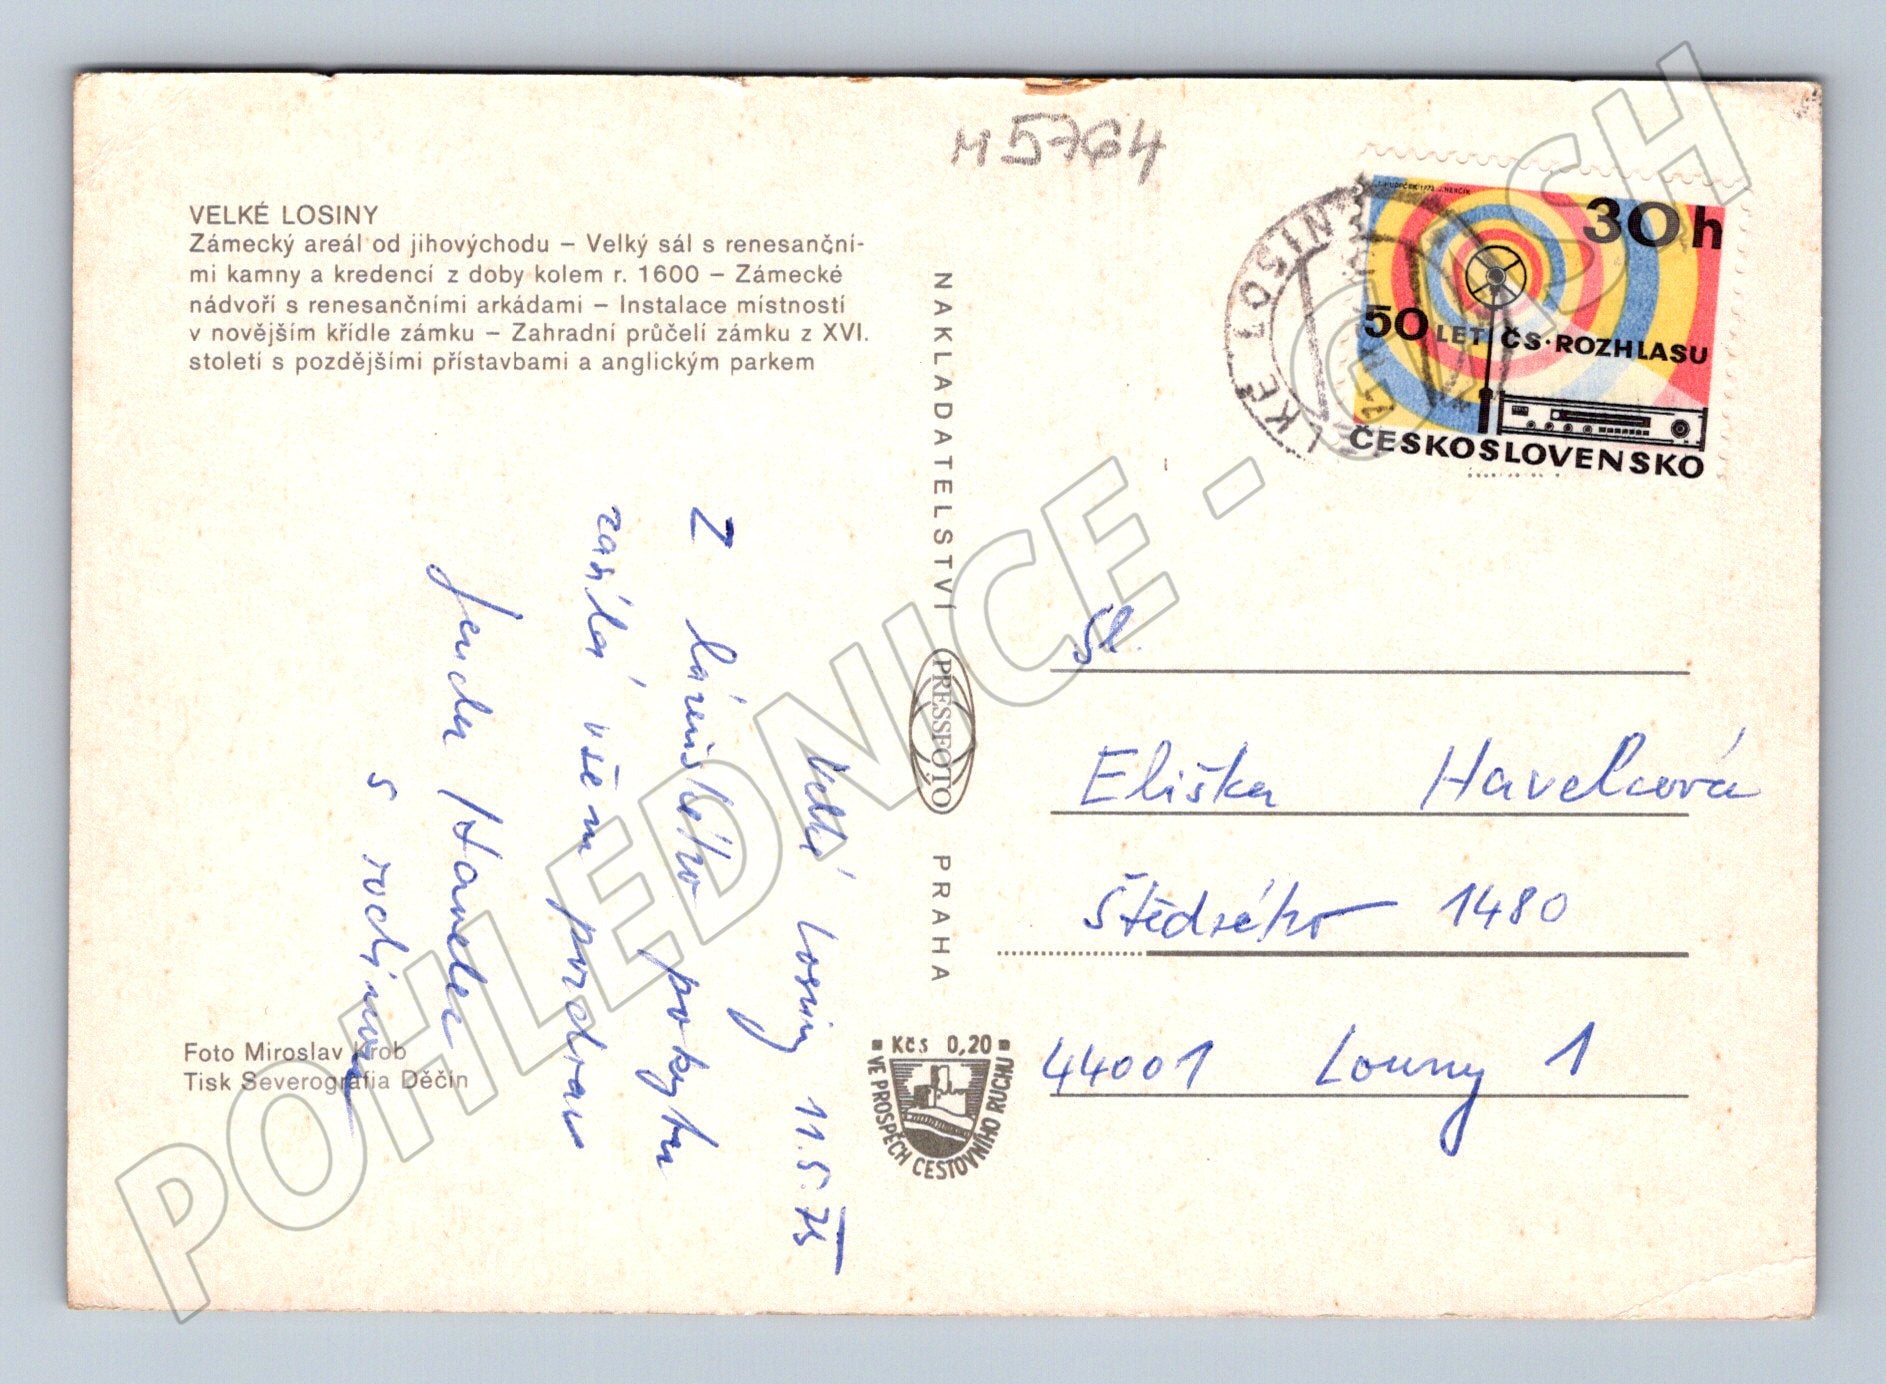 M5764
VELKÉ LOSINY
Zámecký areál od jihovýchodu – Velký sál s renesanční-
mi kamny a kredencí z doby kolem r. 1600 – Zámecké
nádvoří s renesančními arkádami – Instalace místností
v novějším křídle zámku – Zahradní průčelí zámku z XVI.
století s pozdějšími přístavbami a anglickým parkem
Velké Losiny 11.5.75
Z lázeňského pobytu
zasílá všem pozdrav
Jenda Havelec
s rodinou
Foto Miroslav Krob
Tisk Severografia Děčín
NAKLADATELSTVÍ PRESSFOTO PRAHA
Kčs 0,20
VE PROSPĚCH CESTOVNÍHO RUCHU
VELKÉ LOSINY
30h
50 LET ČS·ROZHLASU
ČESKOSLOVENSKO
Sl.
Eliška Havelcová
Štědrého 1480
44001 Louny 1
POHLEDNICE - CASH